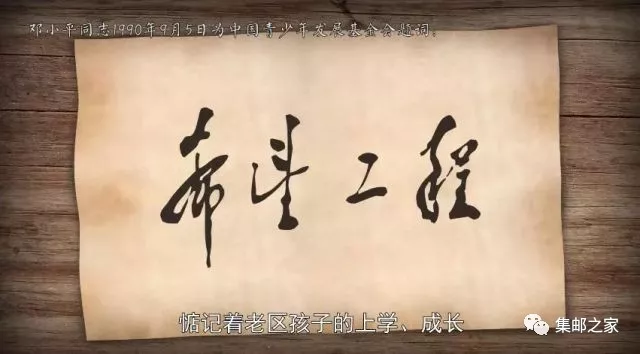 邓小平同志1990年9月5日为中国青少年发展基金会题词:
希望工程
惦记着老区孩子的上学、成长
集邮之家